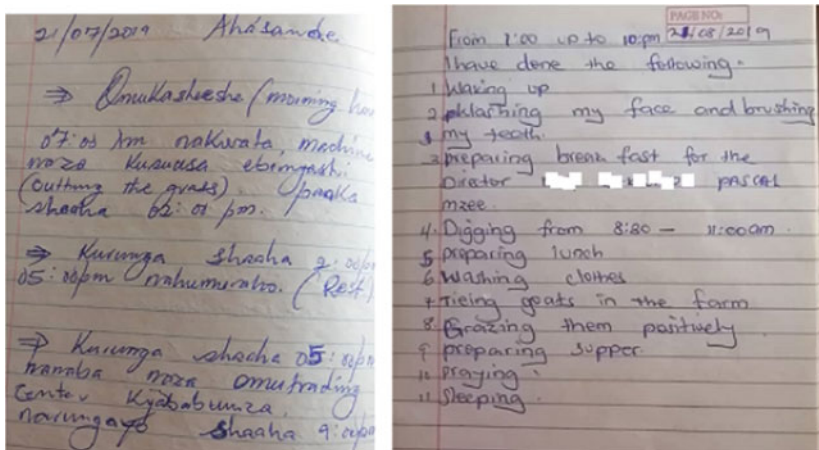 21/07/2019 Ahásande
⇒ Omukasheeshe (morning
07:00 Am nakwata machine
noza kusuusa ebinyashi
(Cutting the grass). paaka
shaaha 02:00 pm.
⇒ Kurunga shaaha 2:00pm
05:00pm nahumuraho. (Rest)
⇒ Kurunga shaaha 05:00pm
nanaba noza omutrading
Center Kyababumza,
narungayo shaaha 9:00pm
PAGE NO:
From 1:00 up to 10:pm 21/08/2019
I have done the following.
1 Waking up
2 phlashing my face and brushing
my teeth.
3 preparing break fast for the
Director PASCAL
mzee.
4. Digging from 8:30 — 11:00am.
5 preparing lunch
6 Washing clothes
7 Tieing goats in the farm
8. Grazing them positively
9 preparing supper.
10 praying.
11 Sleeping.